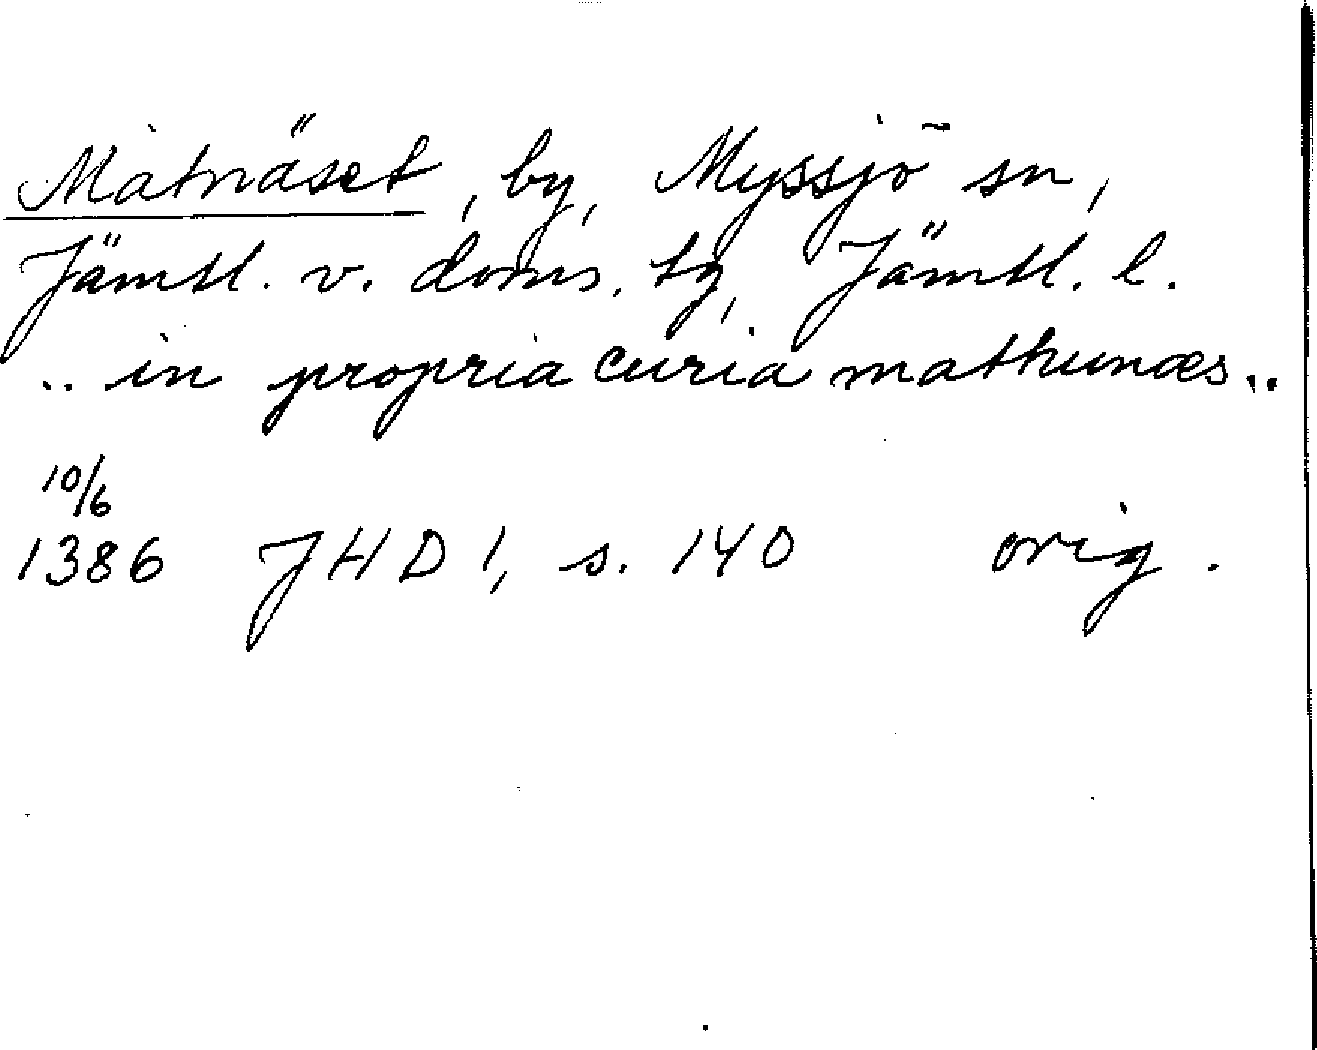 Matnäset, by, Myssjö sn,
Jämtl. v. doms. tg, Jämtl. l.
.. in propria curia mathunæs ..
10/6
1386 JHD 1, s. 140 orig.